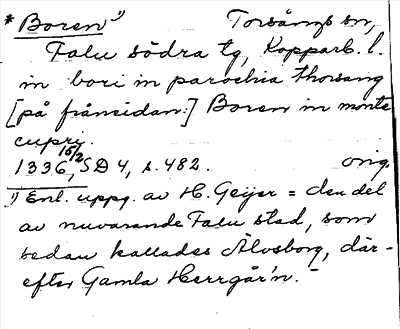 *Boren¹⁾ Torsångs sn,
Falu södra tg, Kopparb. l.
in bori in parochia thorsang
[på frånsidan:] Boren in monte
cupri.
1336 15/2, SD 4, s. 482. orig.
1) Enl. uppg. av H. Geijer = den del
av nuvarande Falu stad, som
sedan kallades Älvsborg, där-
efter Gamla Herrgår'n. -